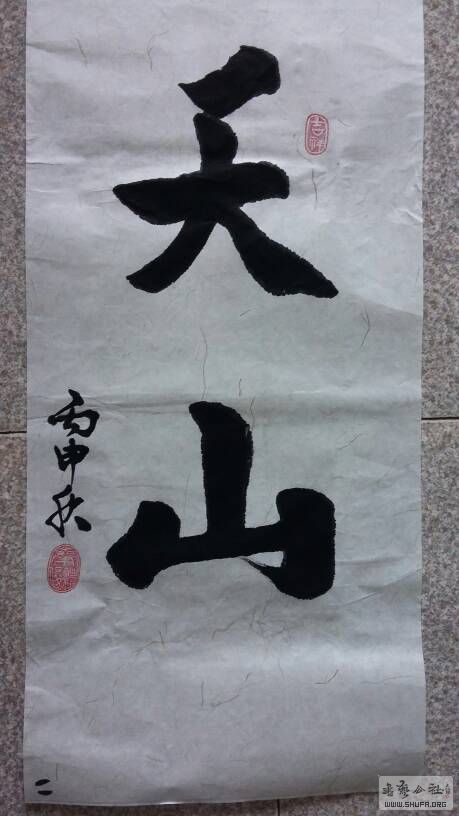 天山
吉祥
丙申秋
二
書藝公社
WWW.SHUFA.ORG